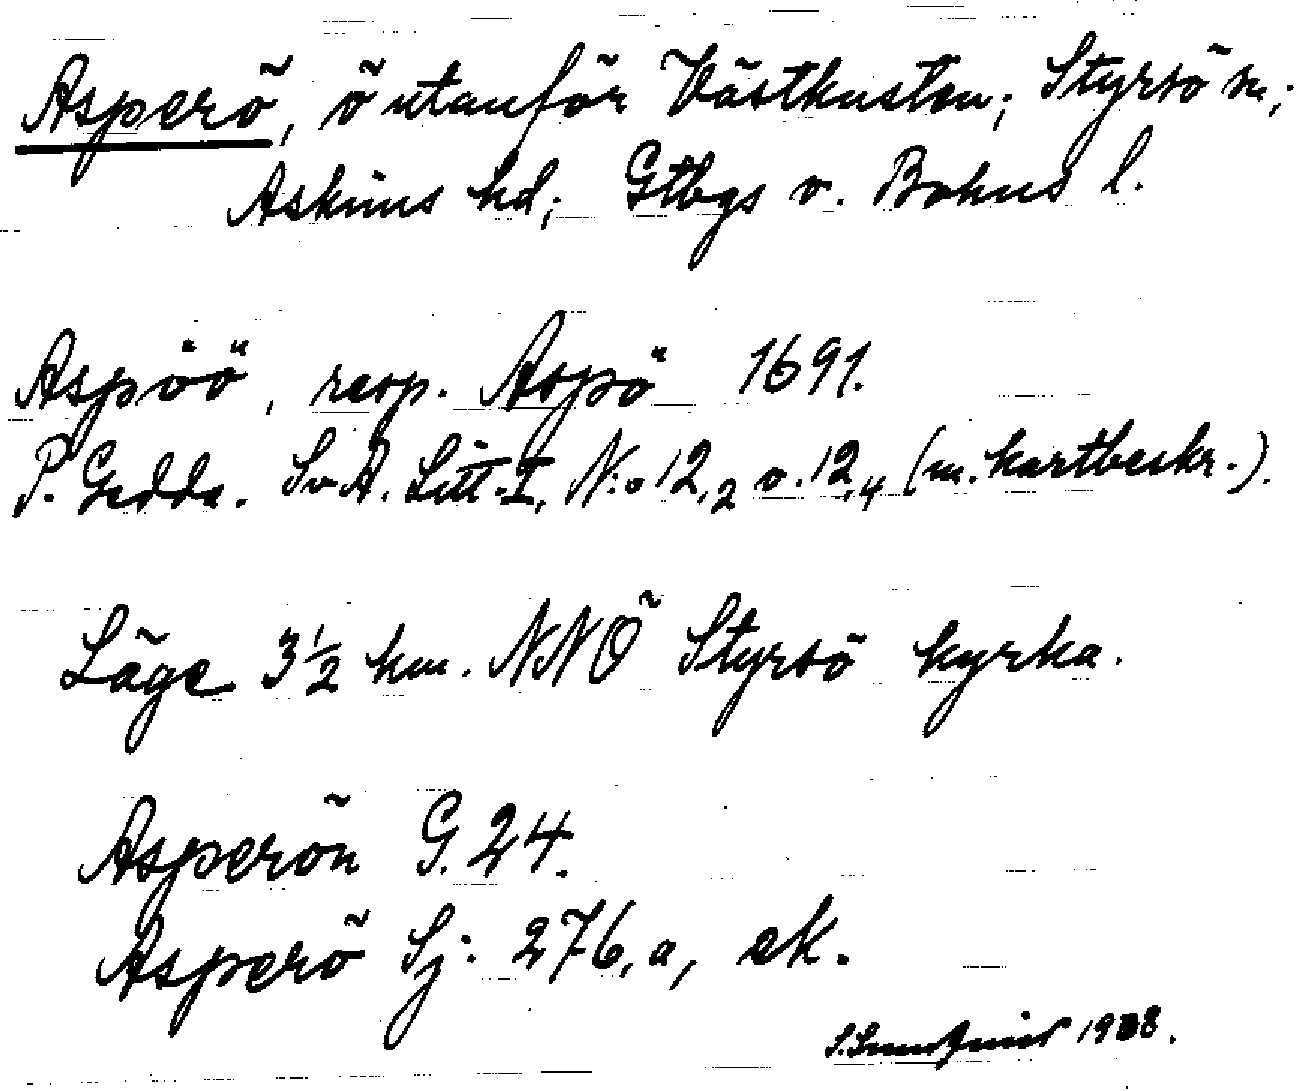 Asperö, ö utanför Västkusten; Styrsö sn;
Askims hd; Gtbgs o. Bohus l.
Aspöö, resp. Aspö 1691.
P. Gedda. Sv A. Litt. I, N:o 12,2 o. 12,4 (m. kartbeskr.).
Läge 3½ km. NNÖ Styrsö kyrka.
Asperön G. 24.
Asperö Sj: 276, a, ek.